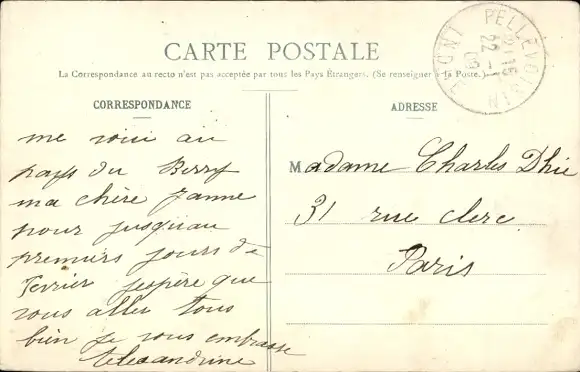 CARTE POSTALE
La Correspondance au recto n'est pas acceptée par tous les Pays Étrangers. (Se renseigner à la Poste.)
PELLEVOISIN
21 15
22 -1
09
CORRESPONDANCE
me voici au
pays du Berry
ma chère Janne
pour jusquau
premiers jours de
Fevrier jespère que
vous allez tous
bien je vous embrasse
Alexandrine
ADRESSE
Madame Charles Dhie
31 rue clerc
Paris